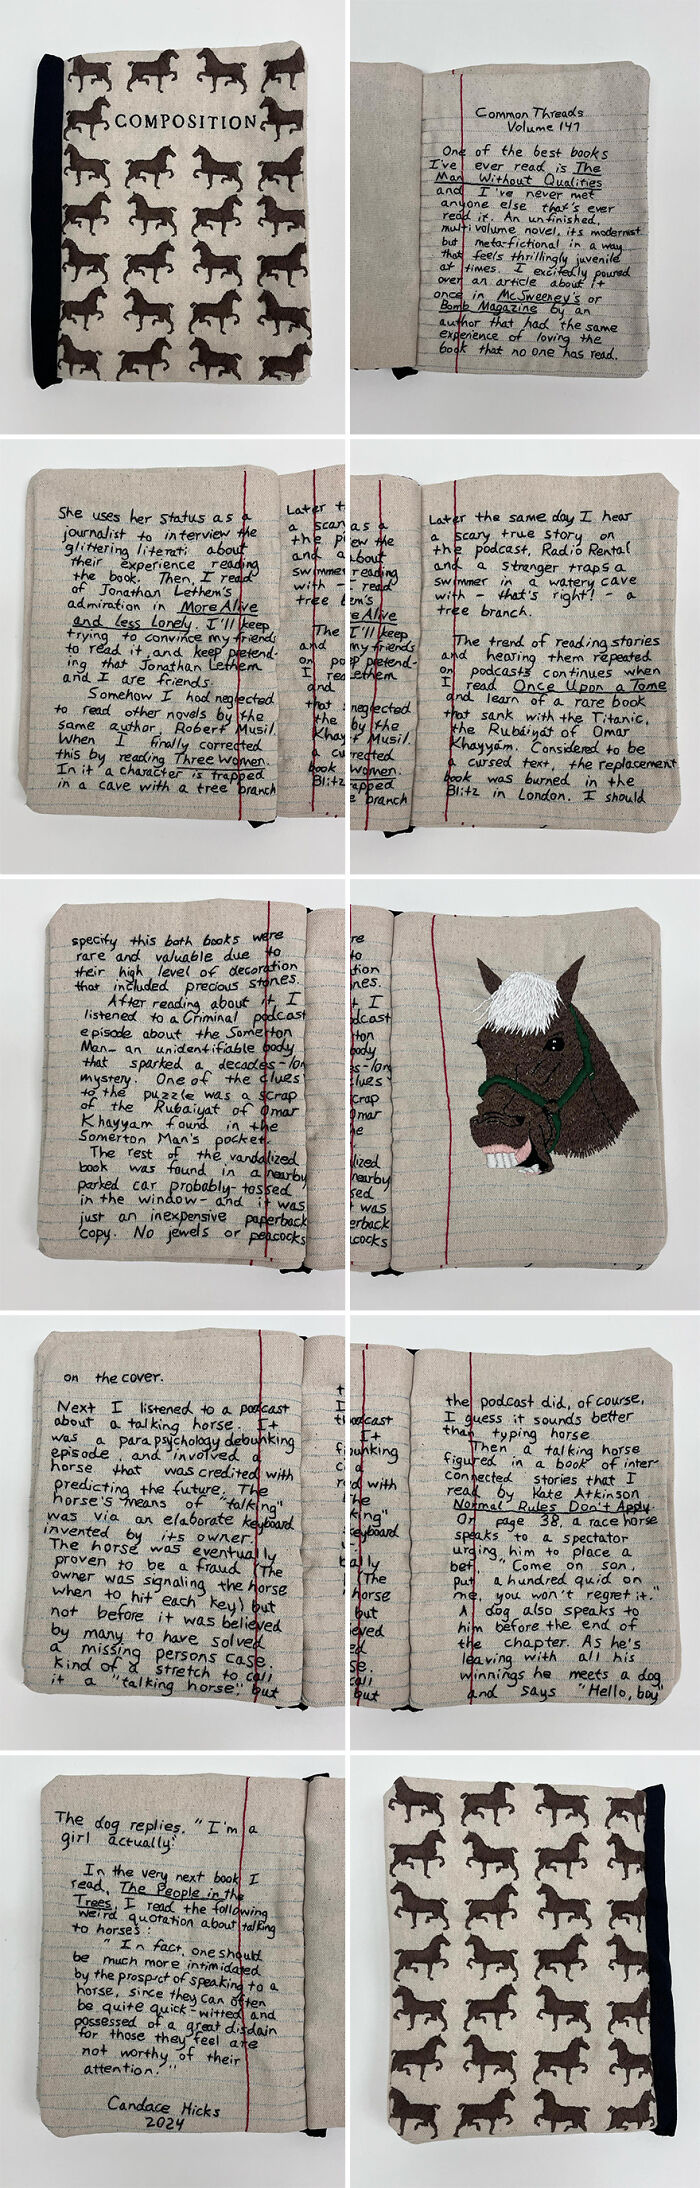 COMPOSITION
Common Threads
Volume 147
One of the best books
I've ever read is The
Man Without Qualities
and I've never met
anyone else that's ever
read it. An unfinished,
multivolume novel, its modernist
but meta-fictional in a way
that feels thrillingly juvenile
at times. I excitedly poured
over an article about it
once in McSweeney's or
Bomb Magazine by an
author that had the same
experience of loving the
book that no one has read.
She uses her status as a
journalist to interview the
glittering literati about
their experience reading
the book. Then, I read
of Jonathan Lethem's
admiration in More Alive
and Less Lonely. I'll keep
trying to convince my friends
to read it and keep pretend-
ing that Jonathan Lethem
and I are friends.
Somehow I had neglected
to read other novels by the
same author Robert Musil.
When I finally corrected
this by reading Three Women.
In it a character is trapped
in a cave with a tree branch
Later the same day I hear
a scary true story on
the podcast, Radio Rental
and a stranger traps a
swimmer in a watery cave
with - that's right! - a
tree branch.
The trend of reading stories
and hearing them repeated
on podcasts continues when
I read Once Upon a Tome
and learn of a rare book
that sank with the Titanic,
the Rubáiyát of Omar
Khayyám. Considered to be
a cursed text, the replacement
book was burned in the
Blitz in London. I should
specify this both books were
rare and valuable due to
their high level of decoration
that included precious stones.
After reading about it, I
listened to a Criminal podcast
episode about the Somerton
Man- an unidentifiable body
that sparked a decades-lon
mystery. One of the clues
to the puzzle was a scrap
of the Rubaiyat of Omar
Khayyam found in the
Somerton Man's pocket.
The rest of the vandalized
book was found in a nearby
parked car probably tossed
in the window- and it was
just an inexpensive paperback
copy. No jewels or peacocks
on the cover.
Next I listened to a podcast
about a talking horse. It
was a parapsychology debunking
episode and involved a
horse that was credited with
predicting the future. The
horse's means of "talking"
was via an elaborate keyboard
invented by its owner.
The horse was eventually
proven to be a fraud (The
owner was signaling the horse
when to hit each key) but
not before it was believed
by many to have solved
a missing persons case.
Kind of a stretch to call
it a "talking horse", but
the podcast did, of course,
I guess it sounds better
than typing horse.
Then a talking horse
figured in a book of inter-
connected stories that I
read by Kate Atkinson
Normal Rules Don't Apply.
On page 38, a race horse
speaks to a spectator
urging him to place a
bet, "Come on son,
put a hundred quid on
me, you won't regret it."
A dog also speaks to
him before the end of
the chapter. As he's
leaving with all his
winnings he meets a dog
and says "Hello, boy"
The dog replies, "I'm a
girl actually."
In the very next book I
read, The People in the
Trees, I read the following
weird quotation about talking
to horses:
"In fact, one should
be much more intimidated
by the prospect of speaking to a
horse, since they can often
be quite quick-witted and
possessed of a great disdain
for those they feel are
not worthy of their
attention."
Candace Hicks
2024